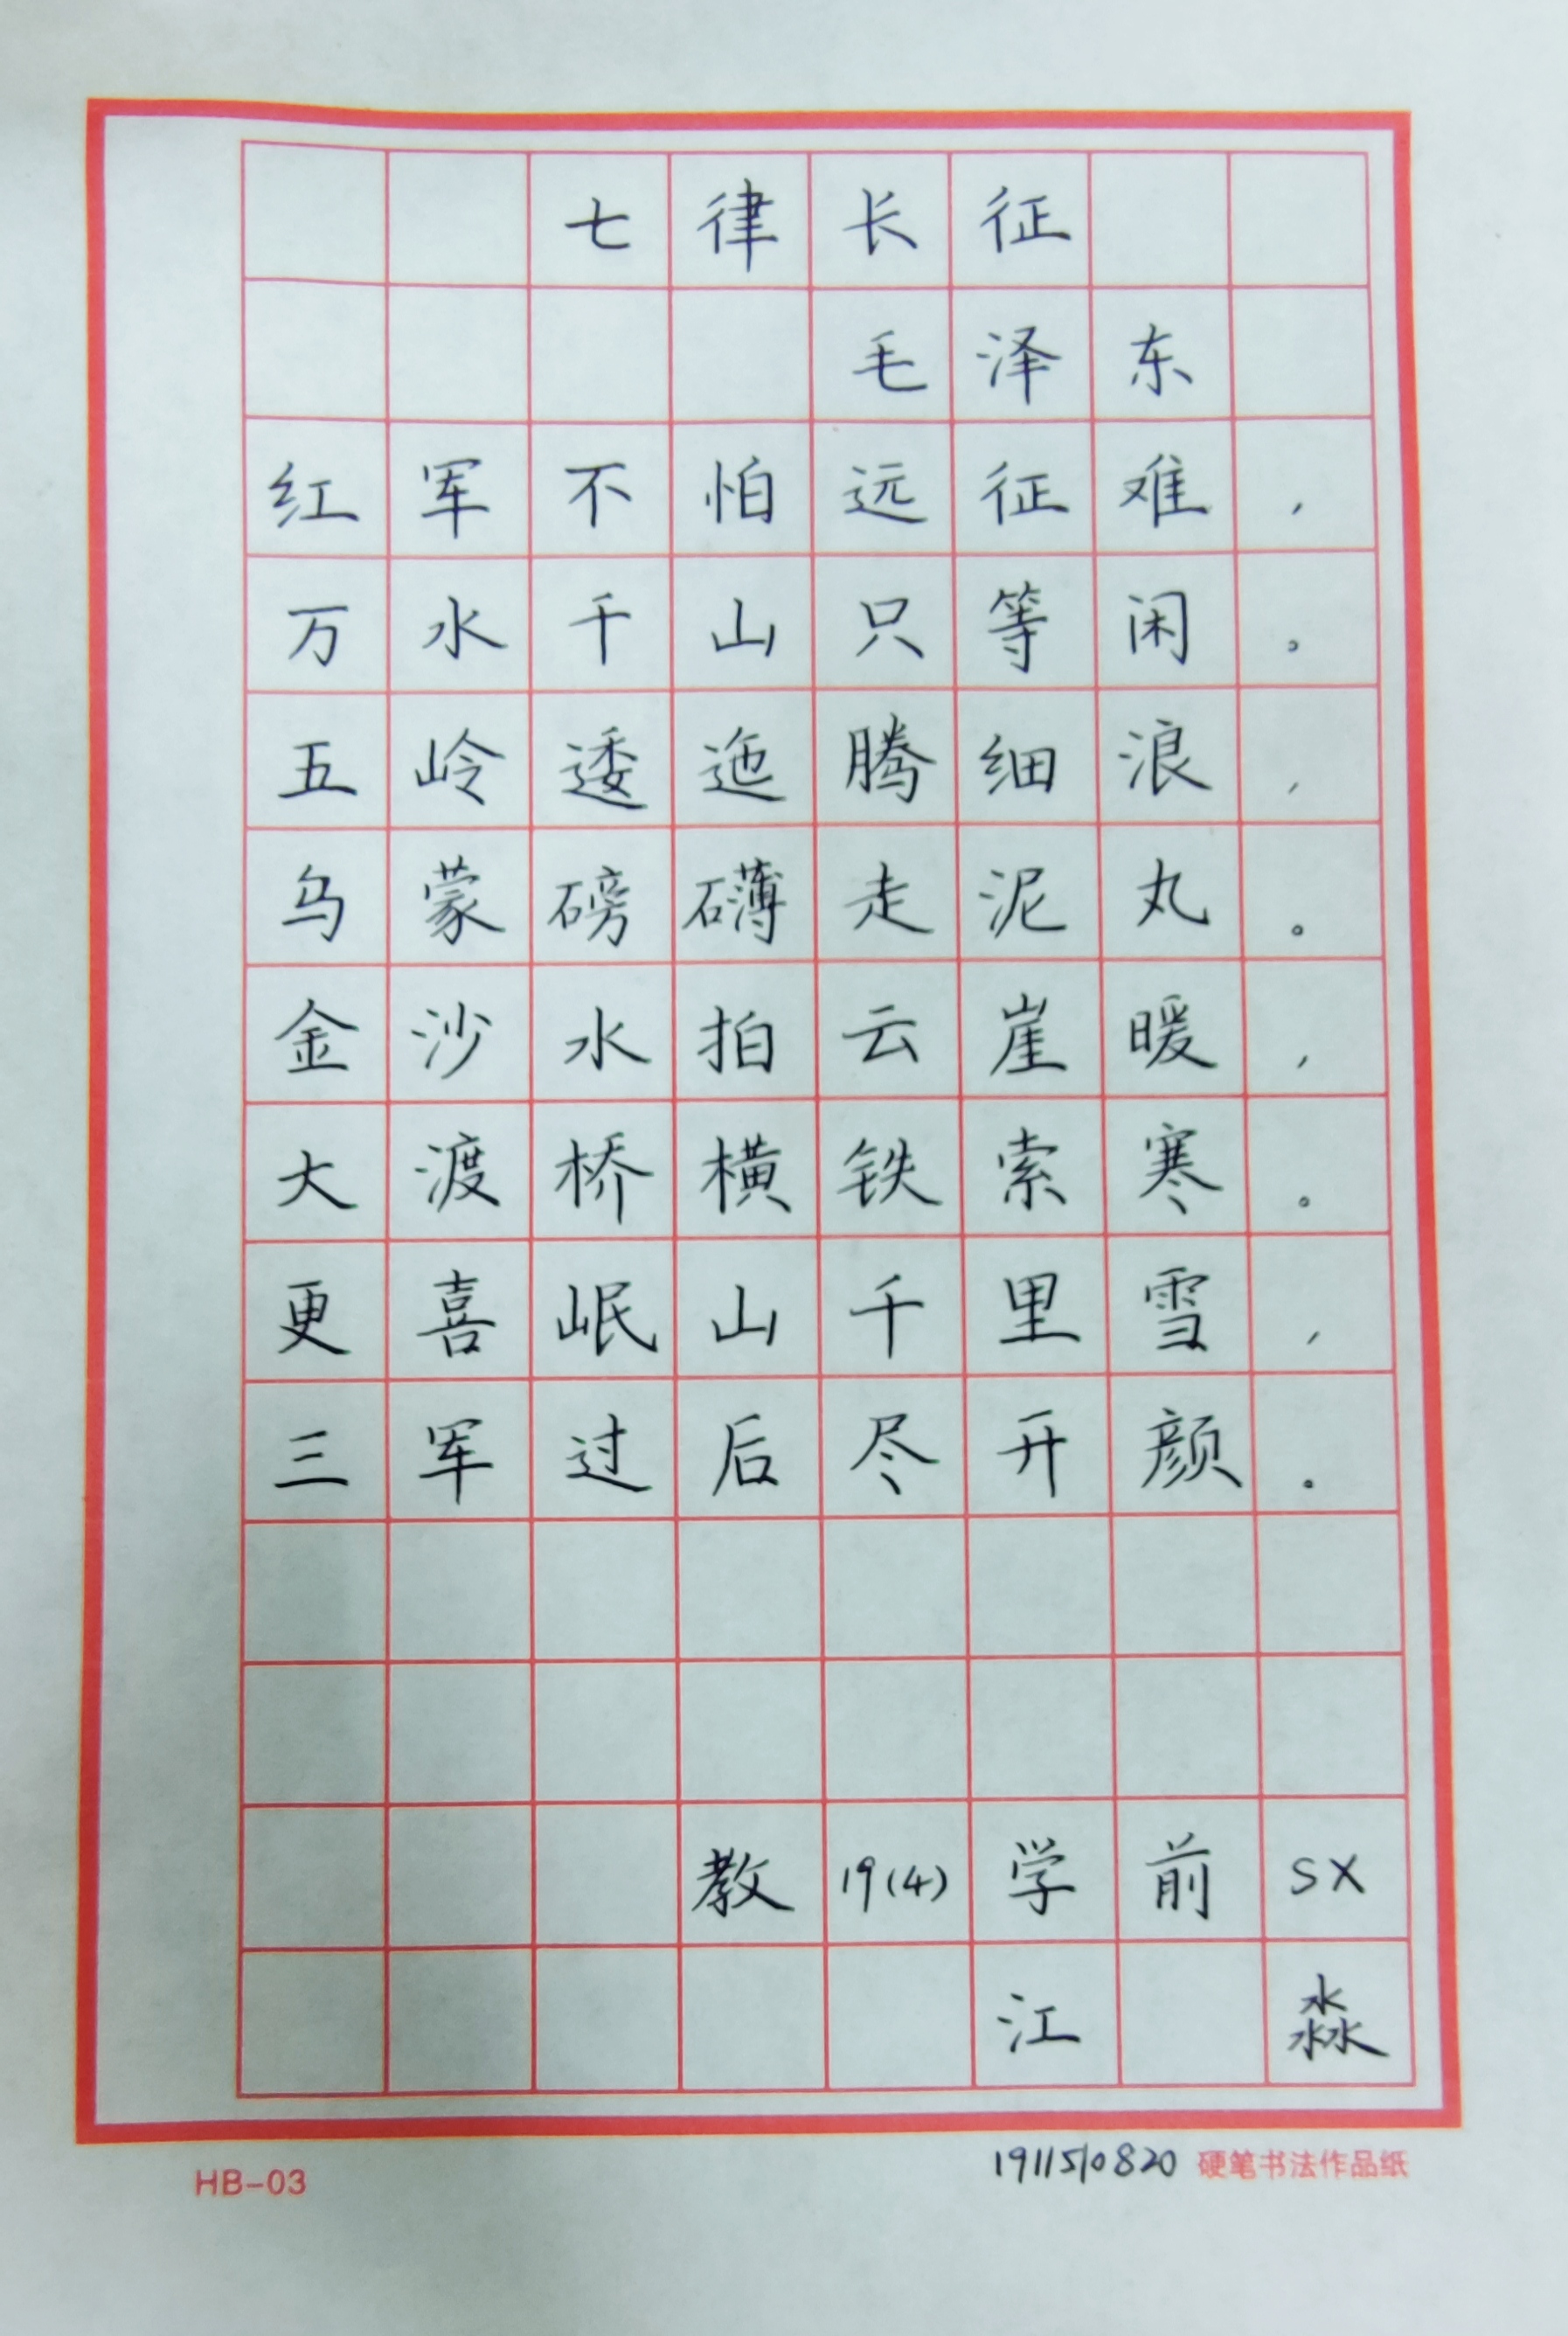 七律长征
毛泽东
红军不怕远征难，
万水千山只等闲。
五岭逶迤腾细浪，
乌蒙磅礴走泥丸。
金沙水拍云崖暖，
大渡桥横铁索寒。
更喜岷山千里雪，
三军过后尽开颜。
教19(4)学前SX
江 淼
1911510820 硬笔书法作品纸
HB-03